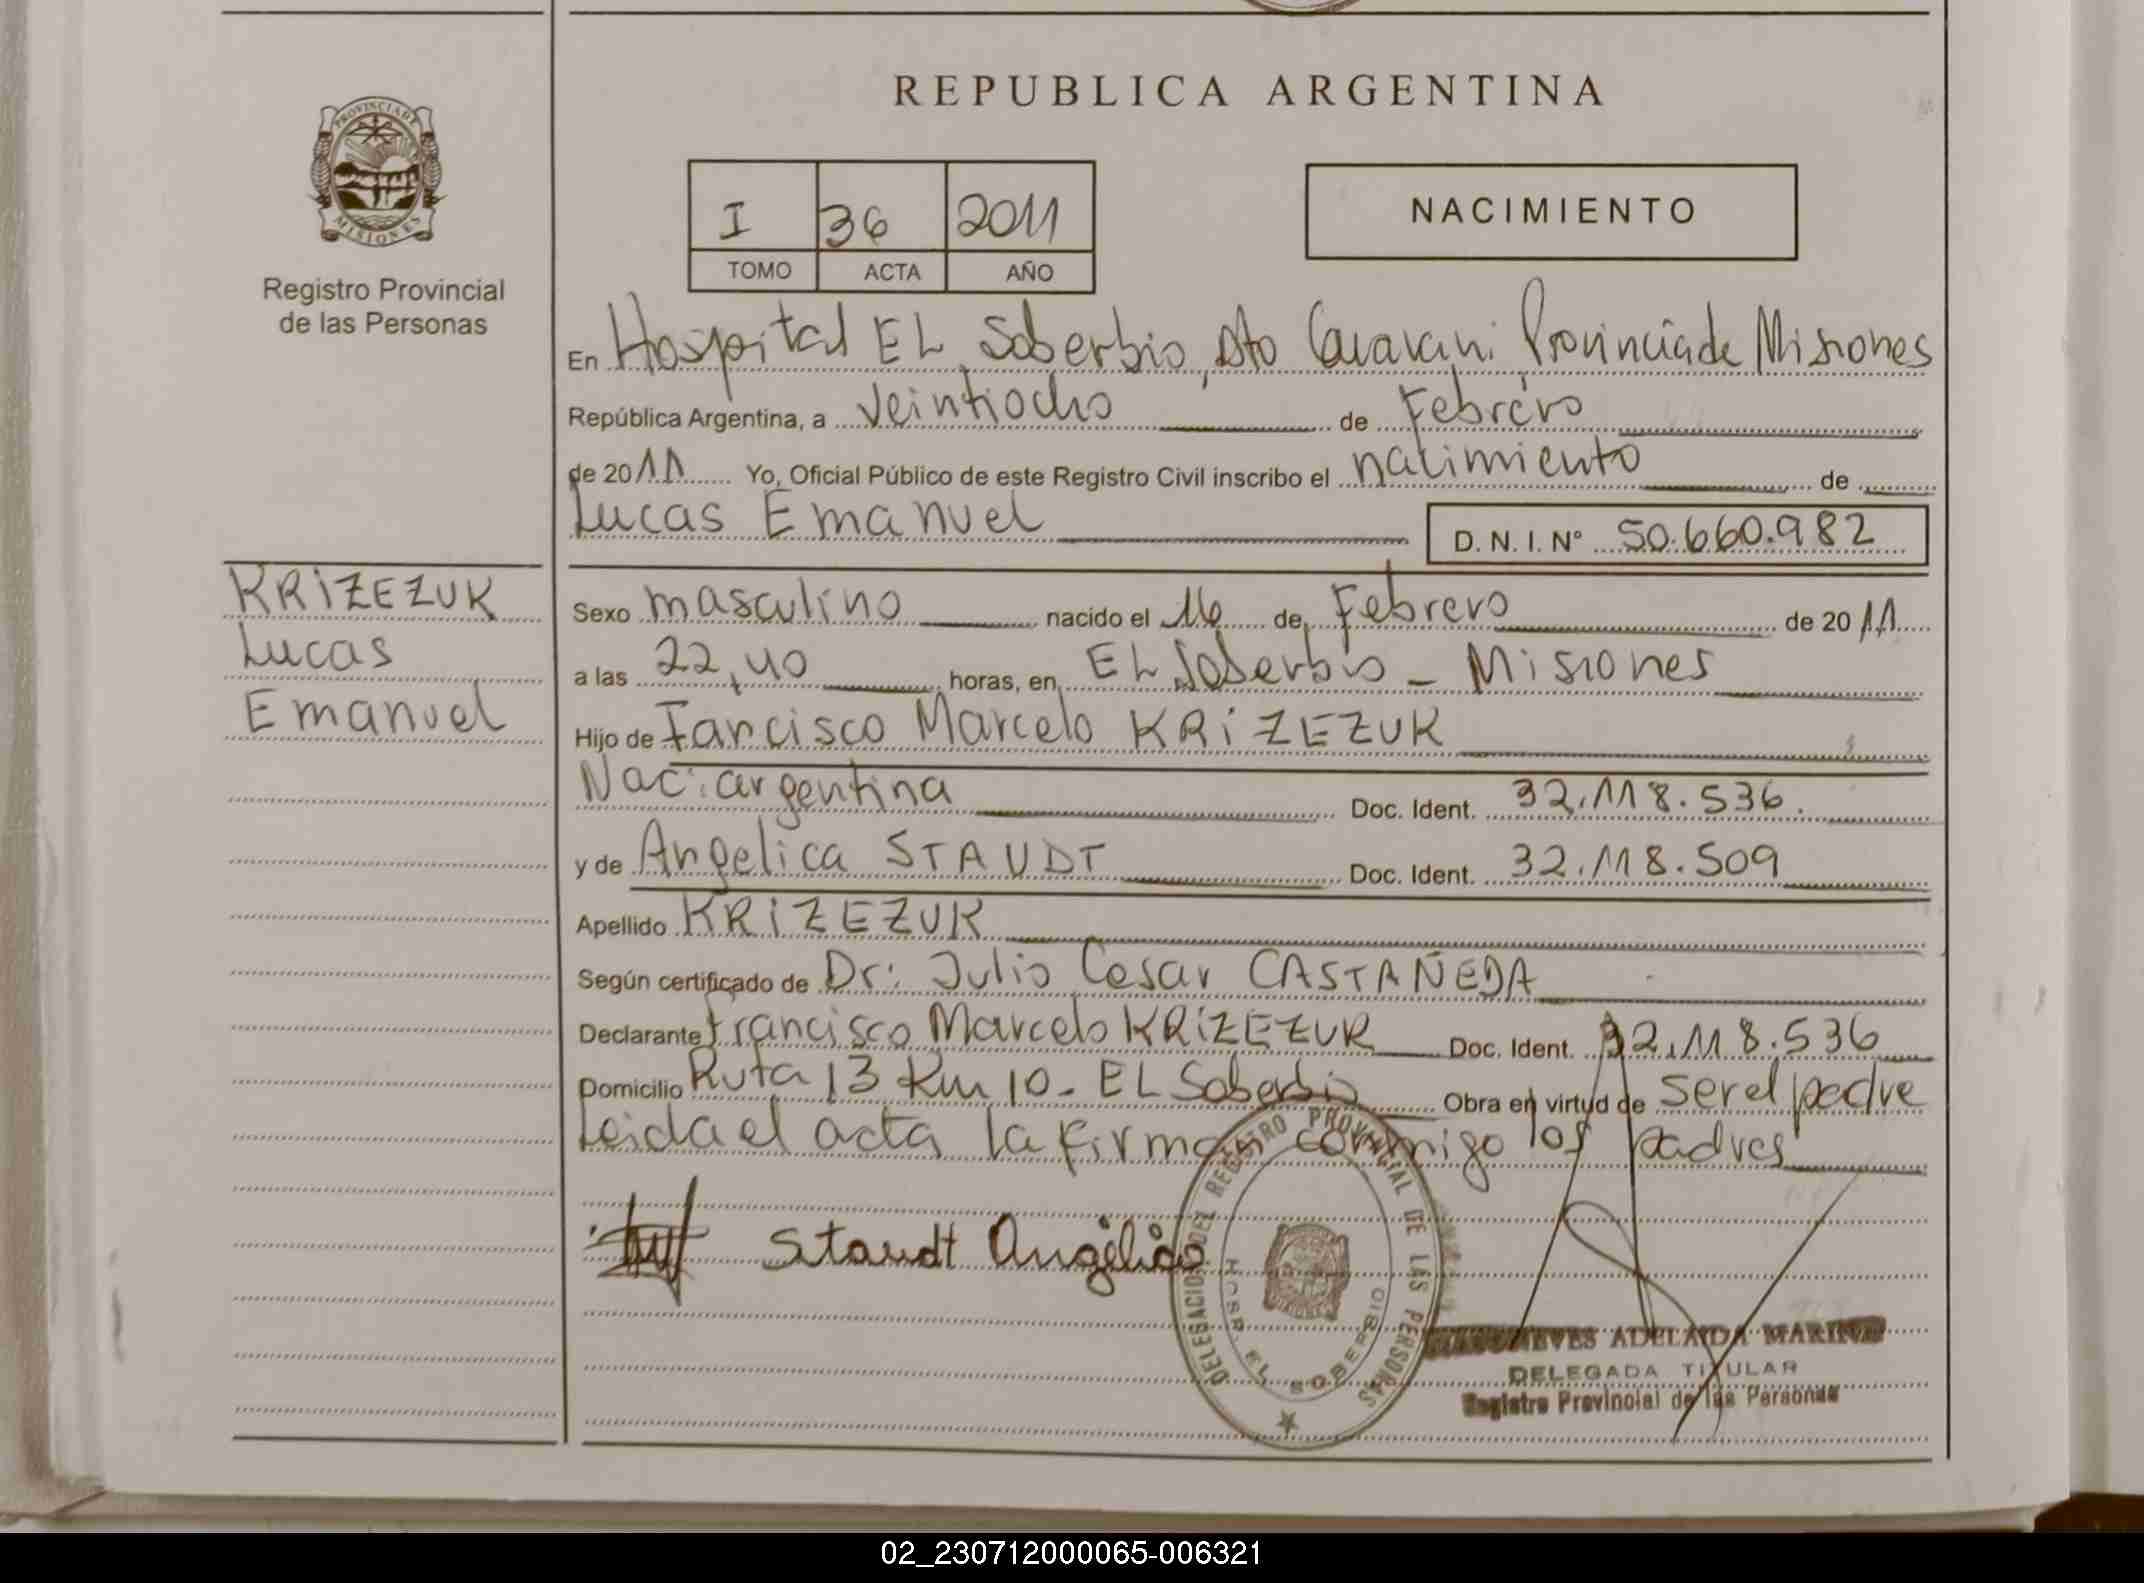 REPUBLICA ARGENTINA
PROVINCIA DE
MISIONES
Registro Provincial
de las Personas
I 36 2011
TOMO ACTA AÑO
NACIMIENTO
En Hospital EL Soberbio, Dto Guarani Provincia de Misiones
República Argentina, a veintiocho de Febrero
de 2011 Yo, Oficial Público de este Registro Civil inscribo el nacimiento de
Lucas Emanuel
D. N. I. N° 50.660.982
KRIZEZUK
Lucas
Emanuel
Sexo masculino nacido el 16 de Febrero de 2011
a las 22,40 horas, en EL Soberbio - Misiones
Hijo de Farcisco Marcelo KRIZEZUK
Nac: argentina Doc. Ident. 32.118.536.
y de Angelica STAUDT Doc. Ident. 32.118.509
Apellido KRIZEZUK
Según certificado de Dr: Julio Cesar CASTAÑEDA
Declarante Francisco Marcelo KRIZEZUK Doc. Ident. 32.118.536
Domicilio Ruta 13 Km 10- EL Soberbio Obra en virtud de ser el padre
Leida el acta la firman conmigo los padres
Staudt Angélica
DELEGACION DEL REGISTRO PROVINCIAL DE LAS PERSONAS
HOSP. EL SOBERBIO
NIEVES ADELAIDA MARIN
DELEGADA TITULAR
Registro Provincial de las Personas
02_230712000065-006321